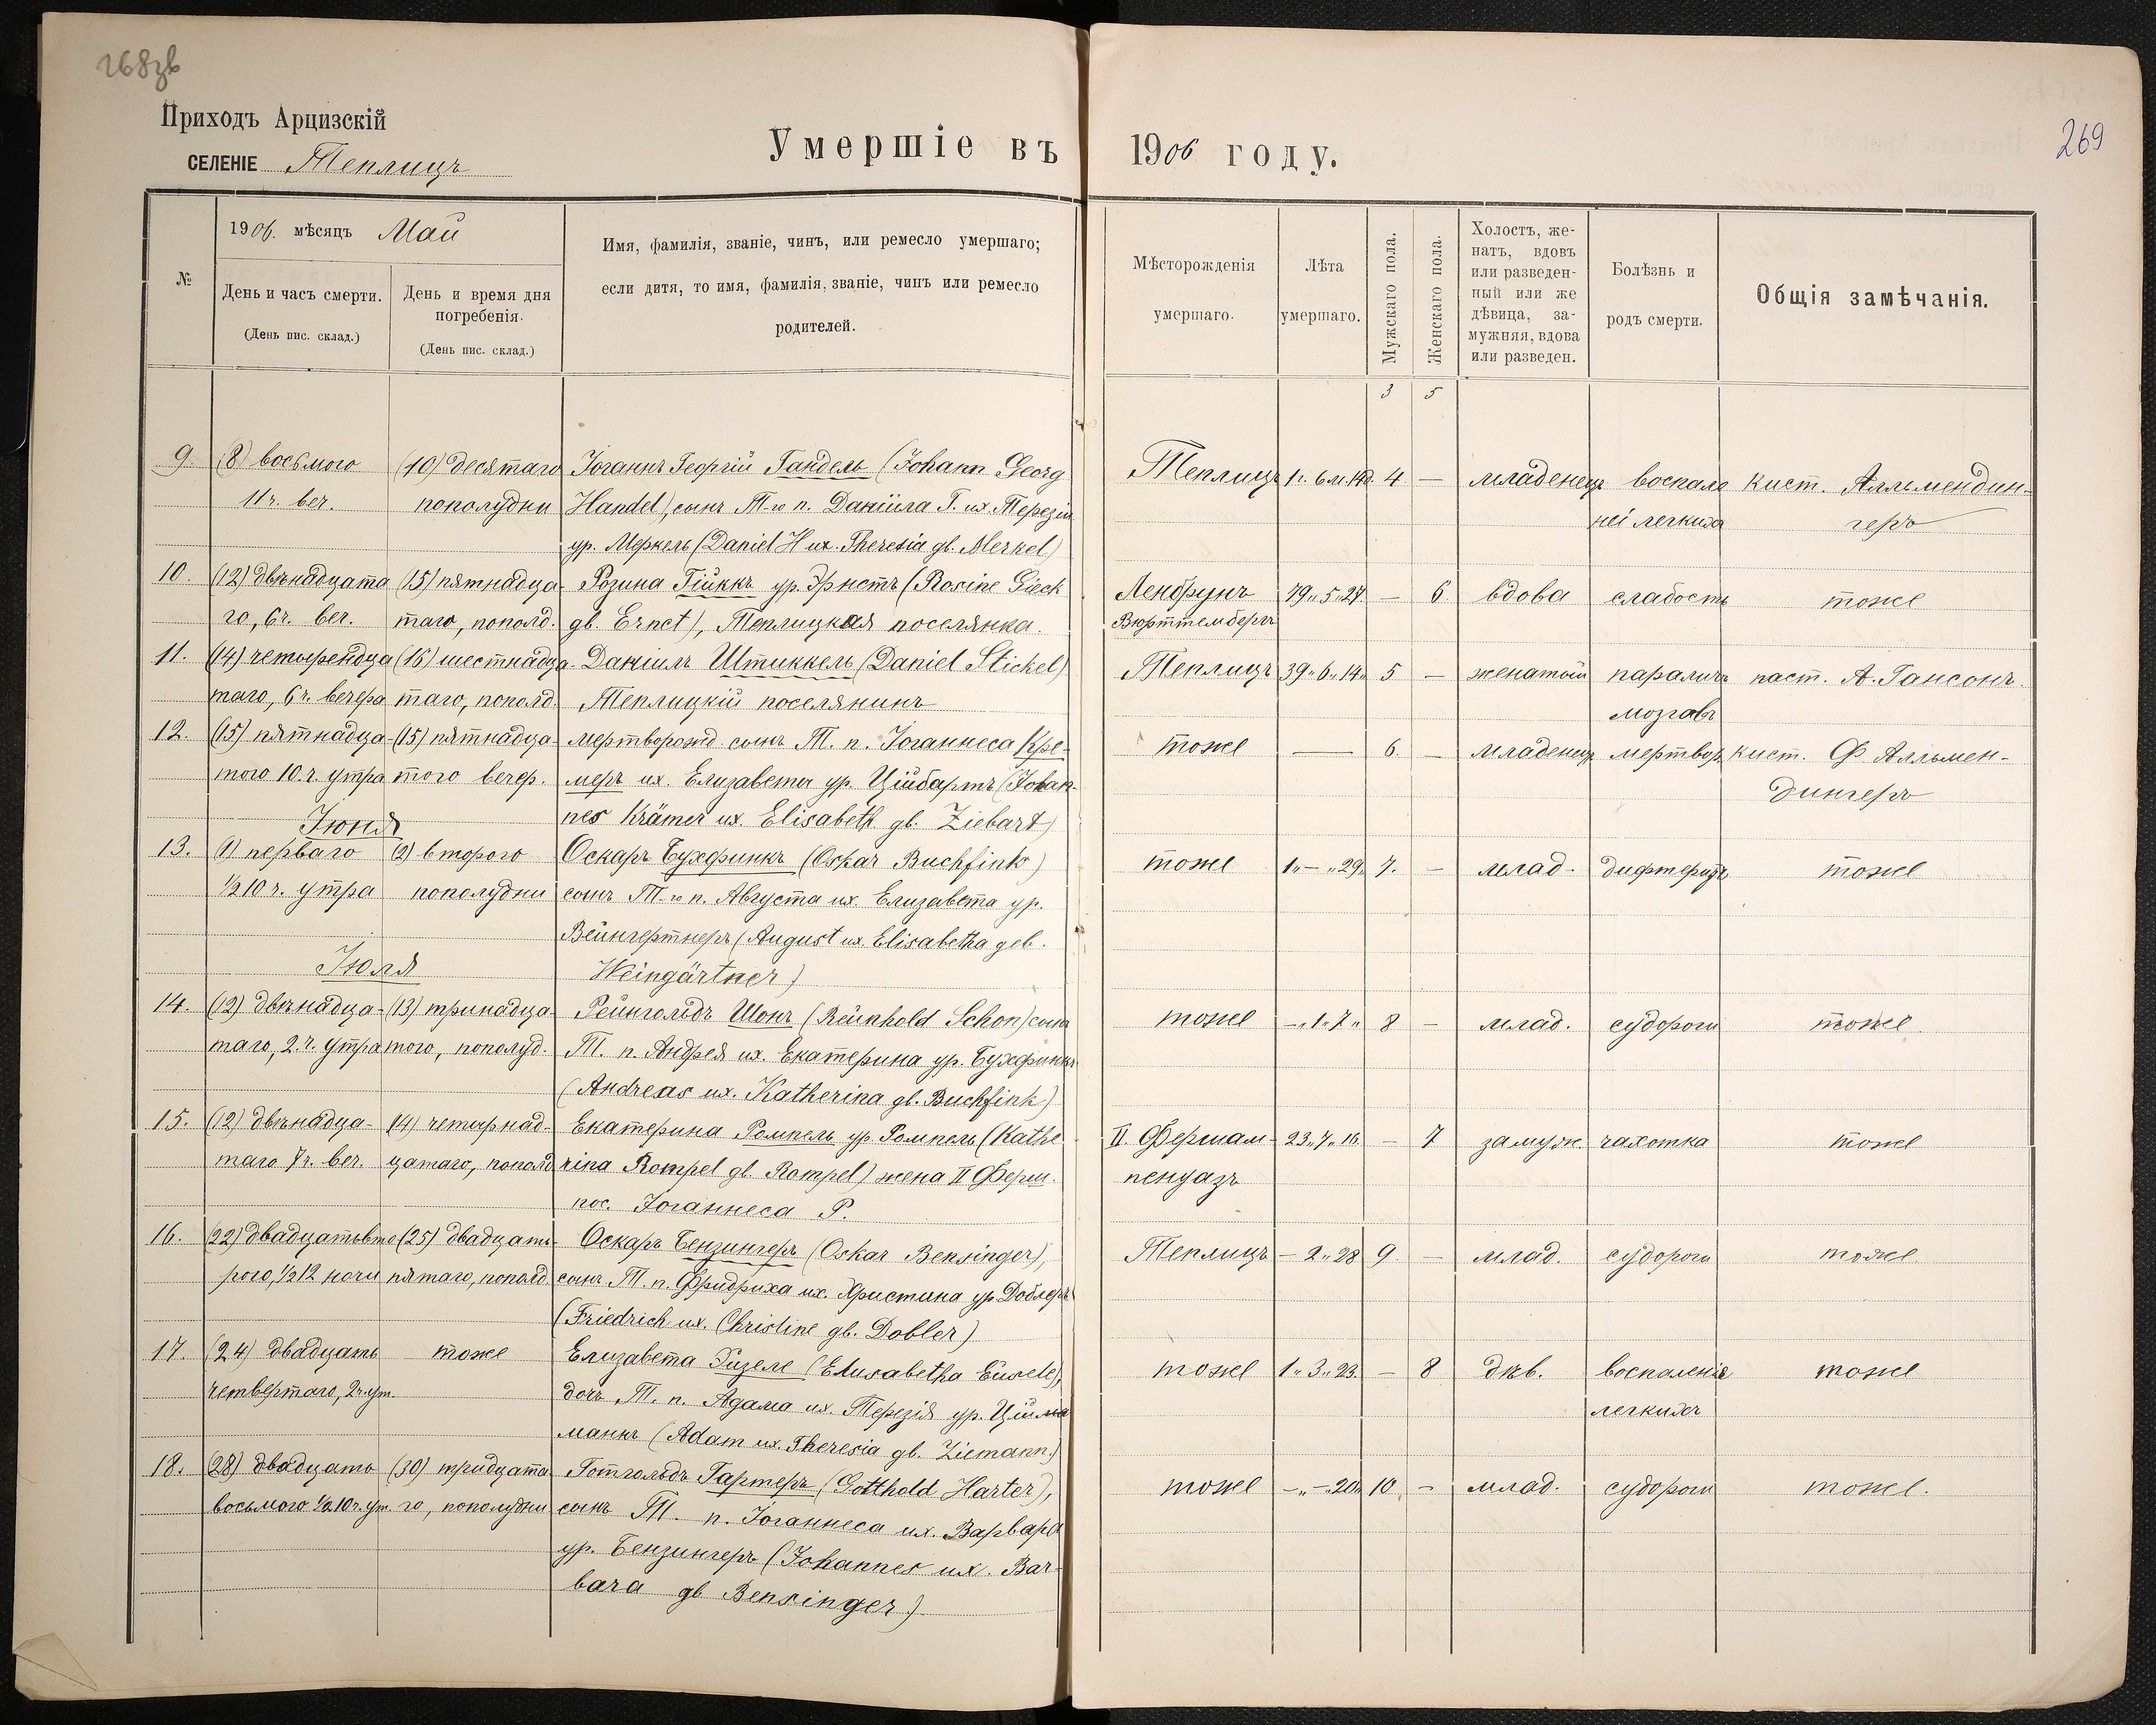 268зв
Приходъ Арцизскій
СЕЛЕНІЕ Теплицъ
Умершіе въ 1906 году.
269
№
1906. мѣсяцъ Май
День и часъ смерти.
(День пис. склад.)
День и время дня
погребенія.
(День пис. склад.)
Имя, фамилія, званіе, чинъ, или ремесло умершаго;
если дитя, то имя, фамилія, званіе, чинъ или ремесло
родителей.
Мѣсторожденія
умершаго.
Лѣта
умершаго.
Мужскаго пола.
Женскаго пола.
Холостъ, же-
натъ, вдовъ
или разведен-
ный или же
дѣвица, за-
мужняя, вдова
или разведен.
Болѣзнь и
родъ смерти.
Общія замѣчанія.
3 5
9. (8) восьмого (10) десятаго Іоганнъ Георгій Гандель (Johann Georg Теплицъ 1г. 6м. 14д. 4 — младенецъ воспале кист. Алльмендин-
11 ч. веч. пополудни Handel), сынъ Т-го п. Даніила Г. их. Терезіи ніе легкихъ геръ
ур. Меркель (Daniel H их. Theresia gb. Merkel)
10. (12) двѣнадцата (15) пятнадца- Розина Гійккъ ур. Эрнстъ (Rosine Gieck Ленбрунъ 79„5„27. — 6. вдова слабость тоже
го, 6 ч. веч. таго, пополд. gb. Ernst), Теплицкая поселянка. Вюрттембергъ
11. (14) четырнадца (16) шестнадца- Даніилъ Штиккель (Daniel Stickel) Теплицъ 39„6„14„ 5 — женатый параличъ паст. А. Гансонъ.
таго, 6 ч. вечера таго, пополд. Теплицкій поселянинъ мозговъ
12. (15) пятнадца- (15) пятнадца- мертворожд. сынъ Т. п. Іоганнеса Кре- тоже — 6 — младенецъ мертвор. кист. Ф. Алльмен-
того 10 ч. утра того вечер. меръ их. Елизаветы ур. Ційбартъ (Johan- дингеръ
nes Krämer их. Elisabeth gb. Ziebart)
Іюня
13. (1) перваго (2) второго Оскаръ Бухфинкъ (Oskar Buchfink) тоже 1„—„29„ 7. — млад. дифтеритъ тоже
½10 ч. утра пополудни сынъ Т-го п. Августа их. Елизавета ур.
Вейнгертнеръ (August их. Elisabetha geb.
Weingärtner)
Іюля
14. (12) двѣнадца- (13) тринадца- Рейнгольдъ Шонъ (Reinhold Schon) сынъ тоже —„1„7„ 8 — млад. судороги тоже.
таго, 2 ч. утра того, пополуд. Т. п. Андрея их. Екатерина ур. Бухфинкъ
(Andreas их. Katherina gb. Buchfink)
15. (12) двѣнадца- (14) четырнад- Екатерина Ромпель ур. Ромпель (Kathe- II Фершам- 23„7„16. — 7 замуж. чахотка тоже
таго 7 ч. веч. цатаго, пополд. rina Rompel gb. Rompel) жена II Ферш. пенуазъ
пос. Іоганнеса Р.
16. (22) двадцатьвто (25) двадцать- Оскаръ Бензингеръ (Oskar Bensinger), Теплицъ — 2„28 9. — млад. судороги тоже.
рого, ½12 ночи пятаго, пополд. сынъ Т. п. Фридриха их. Христина ур. Доблеръ
(Friedrich их. Christine gb. Dobler)
17. (24) двадцать тоже Елизавета Эизеле (Elisabetha Eisele), тоже 1„3„23. — 8 дѣв. воспаленіе тоже
четвертаго, 2 ч. ут. дочь Т. п. Адама их. Терезія ур. Цій легкихъ
маннъ (Adam их. Theresia gb. Ziemann.)
18. (28) двадцать (30) тридцата Готгольдъ Гартеръ (Gotthold Harter), тоже —„—„20„ 10 — млад. судороги тоже.
восьмого ½10 ч. ут. го, пополудни сынъ Т. п. Іоганнеса их. Варвара
ур. Бензингеръ (Johannes их. Bar-
bara gb Bensinger)